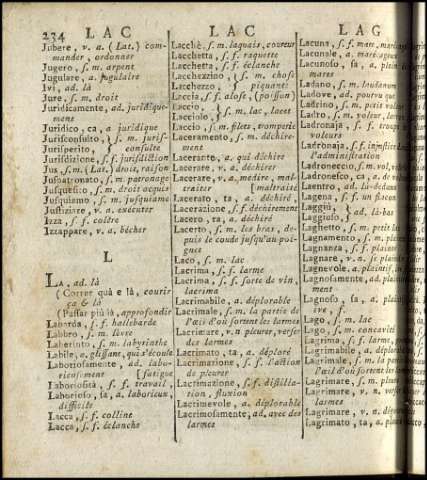 234 LAC
LAC
LAG
Jubere, v. a. (Lat.) com-
mander, ordonner
Jugero, s. m. arpent
Jugulare, a. jugulaire
Ivi, ad. là
Jure, s. m. droit
Juridicamente, ad. juridique-
ment
Juridico, ca, a juridique
Jurisconsulto, } s. m. juris-
Jurisperito, } consulte
Jurisdizione, s. f. jurisdiction
Jus, s. m. (Lat.) droit, raison
Juspatronato, s. m. patronage
Jusquesito, s. m. droit acquis
Jusquiamo, s. m. jusquiame
Justiziare, v. a. exécuter
Izza, s. f. colère
Izzapparre, v. a. bêcher
L
LA, ad. là
(Correr quà e là, courir
çà & là
(Passar più là, approfondir
Labarda, s. f. hallebarde
Labbro, s. m. lèvre
Laberinto, s. m. labyrinthe
Labile, a. glissant, qui s'écoule
Laboriosamente, ad. labo-
rieusement [fatigue
Laboriosità, s. f. travail,
Laborioso, sa, a. laborieux,
difficile
Lacca, s. f. colline
Lacca, s. f. éclanche
Lacchè, s. m. laquais, coureur
Lacchetta, s. f. raquette
Lacchetta, s. f. éclanche
Lacchezzino, } s. m. chose
Lacchezzo, } piquante
Laccia, s. f. alose, (poisson)
Lacciolo, } s. m. lac, lacet
Laccio, s. m. filets, tromperie
Laceramento, s. m. déchire-
ment
Lacerante, a. qui déchire
Lacerare, v. a. déchirer
Lacerare, v. a. médire, mal-
traiter [maltraité
Lacerato, ta, a. déchiré
Lacerazione, s. f. déchirement
Lacero, ra, a. déchiré
Lacerto, s. m. les bras, de-
puis le coude jusqu'au poi-
gnet
Laco, s. m. lac
Lacrima, s. f. larme
Lacrima, s. f. sorte de vin,
lacrima
Lacrimabile, a. déplorable
Lacrimale, s. m. la partie de
l'œil d'où sortent les larmes
Lacrimare, v. n pleurer, verser
des larmes
Lacrimato, ta, a. déploré
Lacrimazione, s. f. l'action
de pleurer
Lacrimazione, s. f. distilla-
tion, fluxion
Lacrimevole, a. déplorable
Lacrimosamente, ad. avec des
larmes
Lacuna, s. f. mare,
Lacunale, a. marécageux
Lacunoso, sa, a. plein de
mares
Ladano, s. m. laudanum
Ladove, ad. pourvu que
Ladrino, s. m. petit voleur
Ladro, s. m. voleur, larron
Ladronaja, s. f. troupe de
voleurs
Ladronaja, s. f. injustice dans
l'administration
Ladroneccio, s. m. vol,
Ladronesco, ca, a. de voleur
Laentro, ad. là-dedans
Lagena, s. f. un flacon
Laggiù, } ad. là-bas
Laggiuso, }
Laghetto, s. m. petit lac
Lagnamento, s. m. plainte
Lagnanza, s. f. plainte
Lagnare, v. n. se plaindre
Lagnevole, a. plaintif,
Lagnosamente, ad. plaintive-
ment
Lagnoso, sa, a. plaintif,
ive, f.
Lago, s. m. lac
Lago, s. m. concavité
Lagrima, s. f. larme,
Lagrimabile, a. déplorable
Lagrimale, s. m. la partie de
l'œil d'où sortent les larmes
Lagrimare, s. m. pleurs
Lagrimare, v. n. pleurer, verser des
larmes
Lagrimare, v. a. déplorer
Lagrimato, ta, a. pleuré